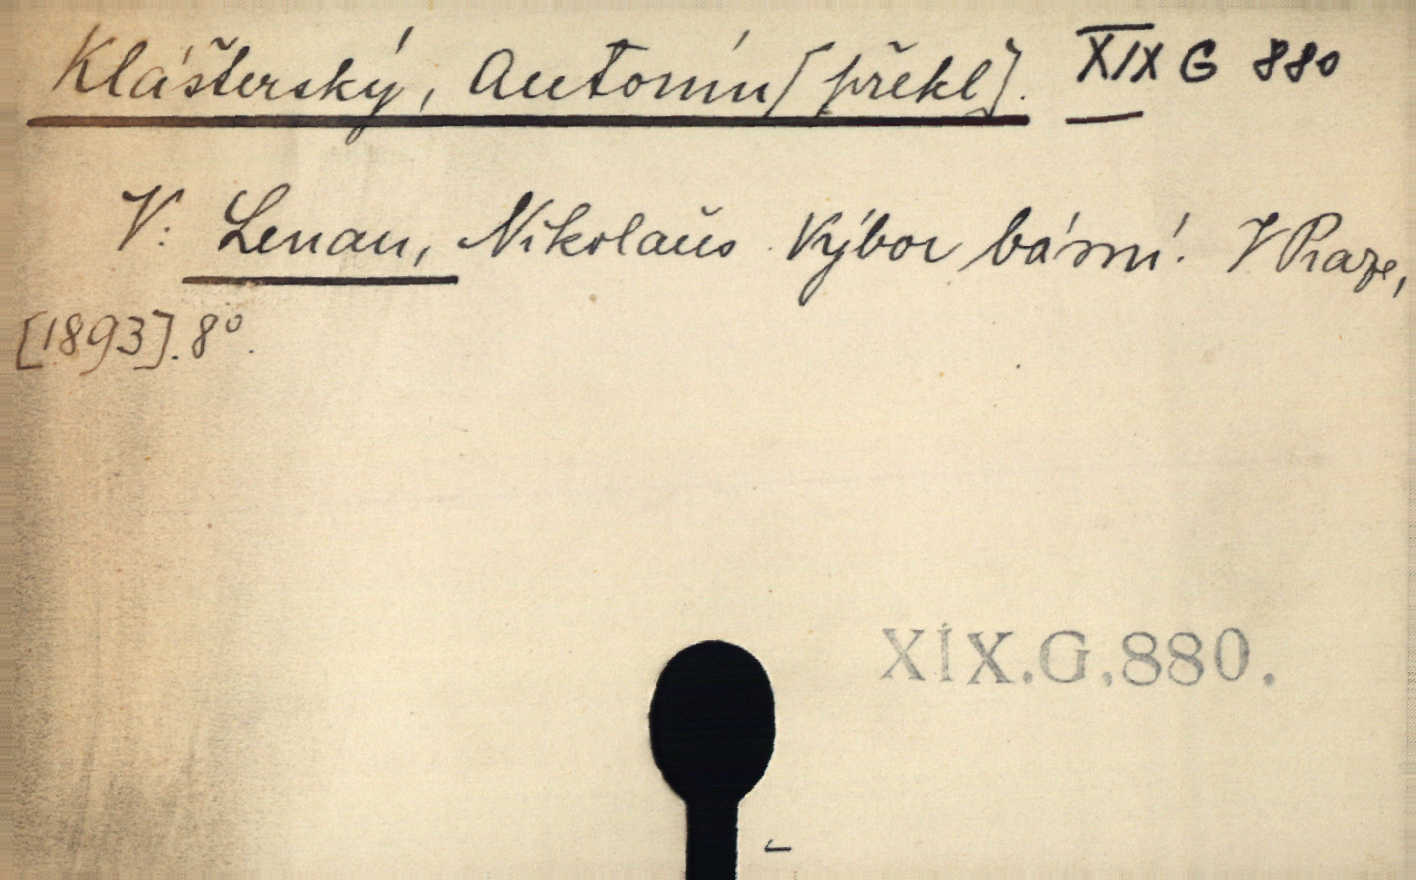 Klášterský, Antonín [překl]. XIX G 880
V: Lenau, Nikolaus. Výbor básní. V Praze,
[1893]. 8°.
XIX.G.880.